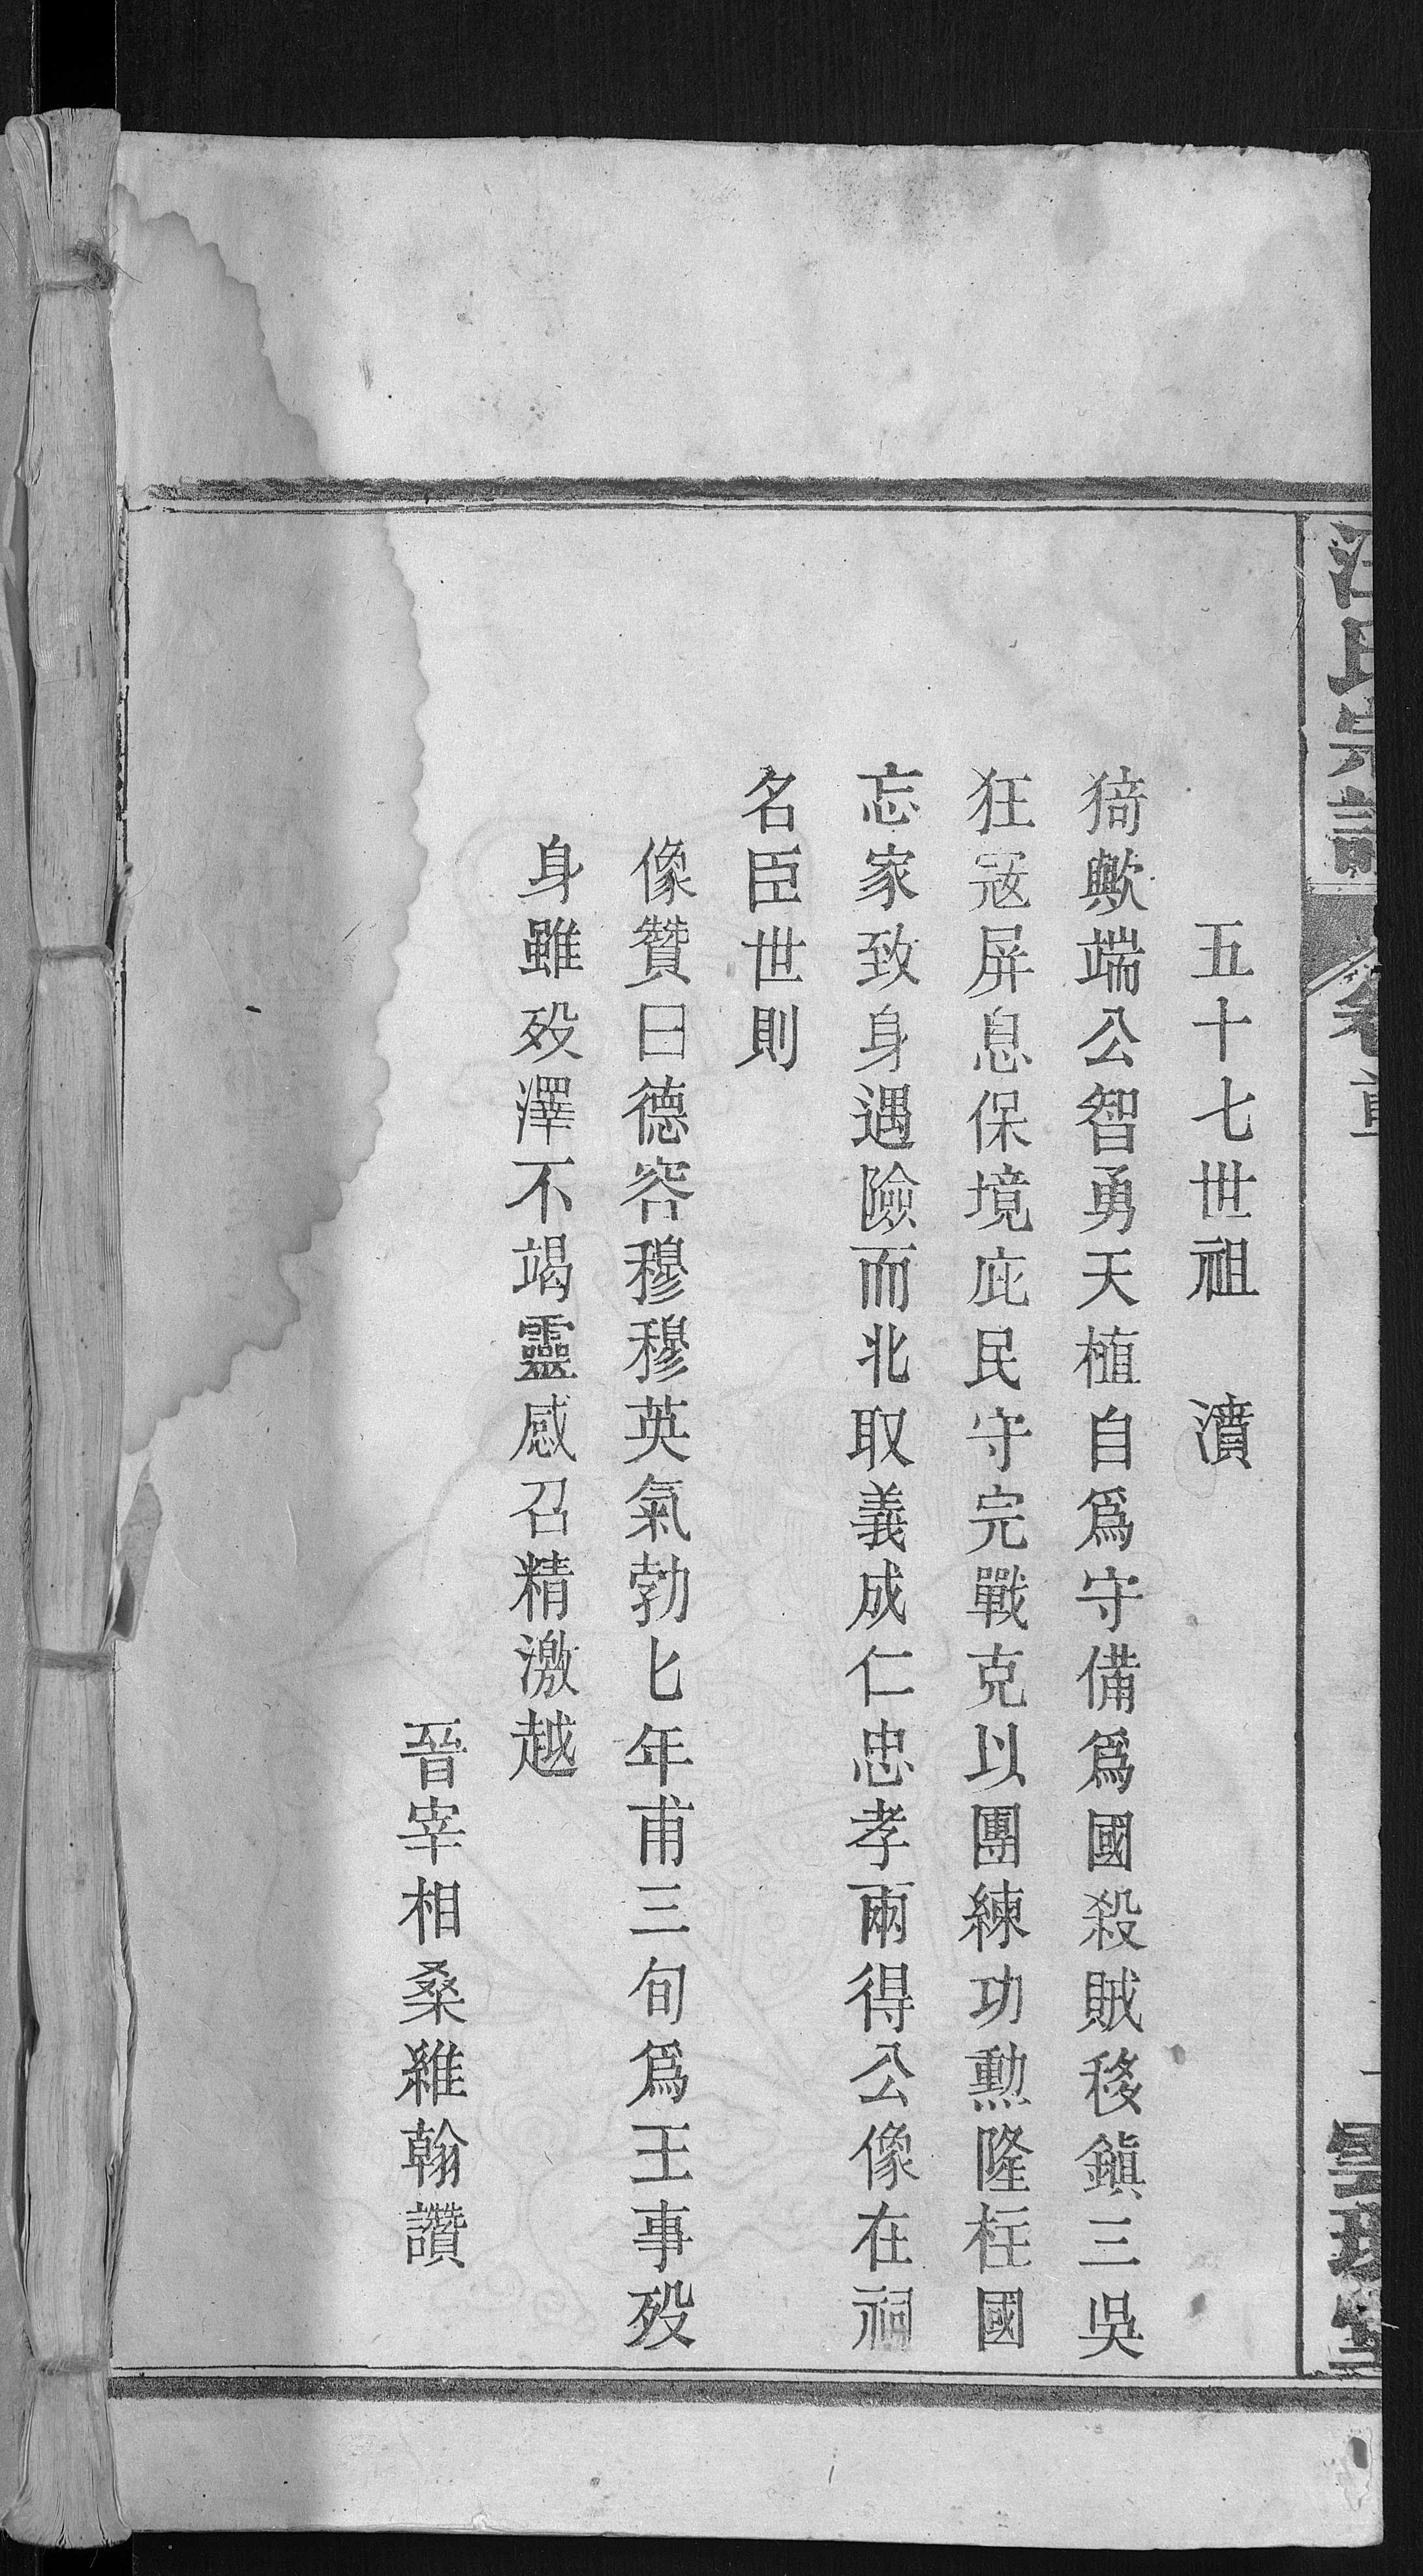 汪氏宗譜
卷首
五十七世祖　濆
猗歟端公智勇天植自爲守備爲國殺賊移鎭三吳
狂冦屏息保境庇民守完戰克以團練功勲隆柱國
忘家致身遇險而北取義成仁忠孝兩得公像在祠
名臣世則
像贊曰德容穆穆英氣勃匕年甫三旬爲王事歿
身雖歿澤不竭靈感召精激越
晉宰相桑維翰讚